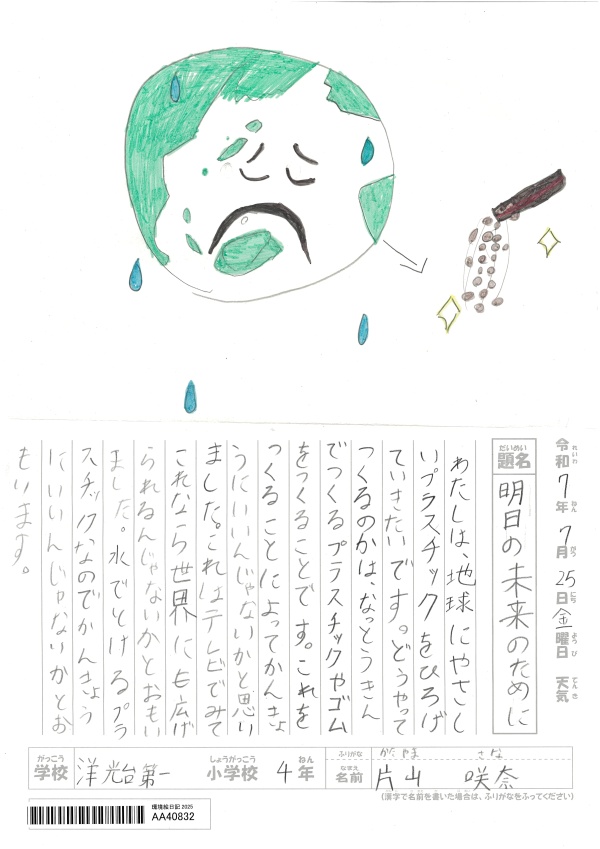 令和7年7月25日金曜日 天気
れいわ ねん がつ にち ようび てんき
だいめい
題名 明日の未来のために
わたしは、地球にやさし
いプラスチックをひろげ
ていきたいです。どうやって
つくるのかは、なっとうきん
でつくるプラスチックやゴム
をつくることです。これを
つくることによってかんきょ
うにいいんじゃないかと思い
ました。これはテレビでみて
これなら世界にも広げ
られるんじゃないかとおもい
ました。水でとけるプラ
スチックなのでかんきょう
にいいんじゃないかとお
もいます。
がっこう しょうがっこう ねん
学校 洋光台第一 小学校 4年
ふりがな かたやま さな
なまえ
名前 片山 咲奈
(漢字で名前を書いた場合は、ふりがなをふってください)
環境絵日記 2025
AA40832